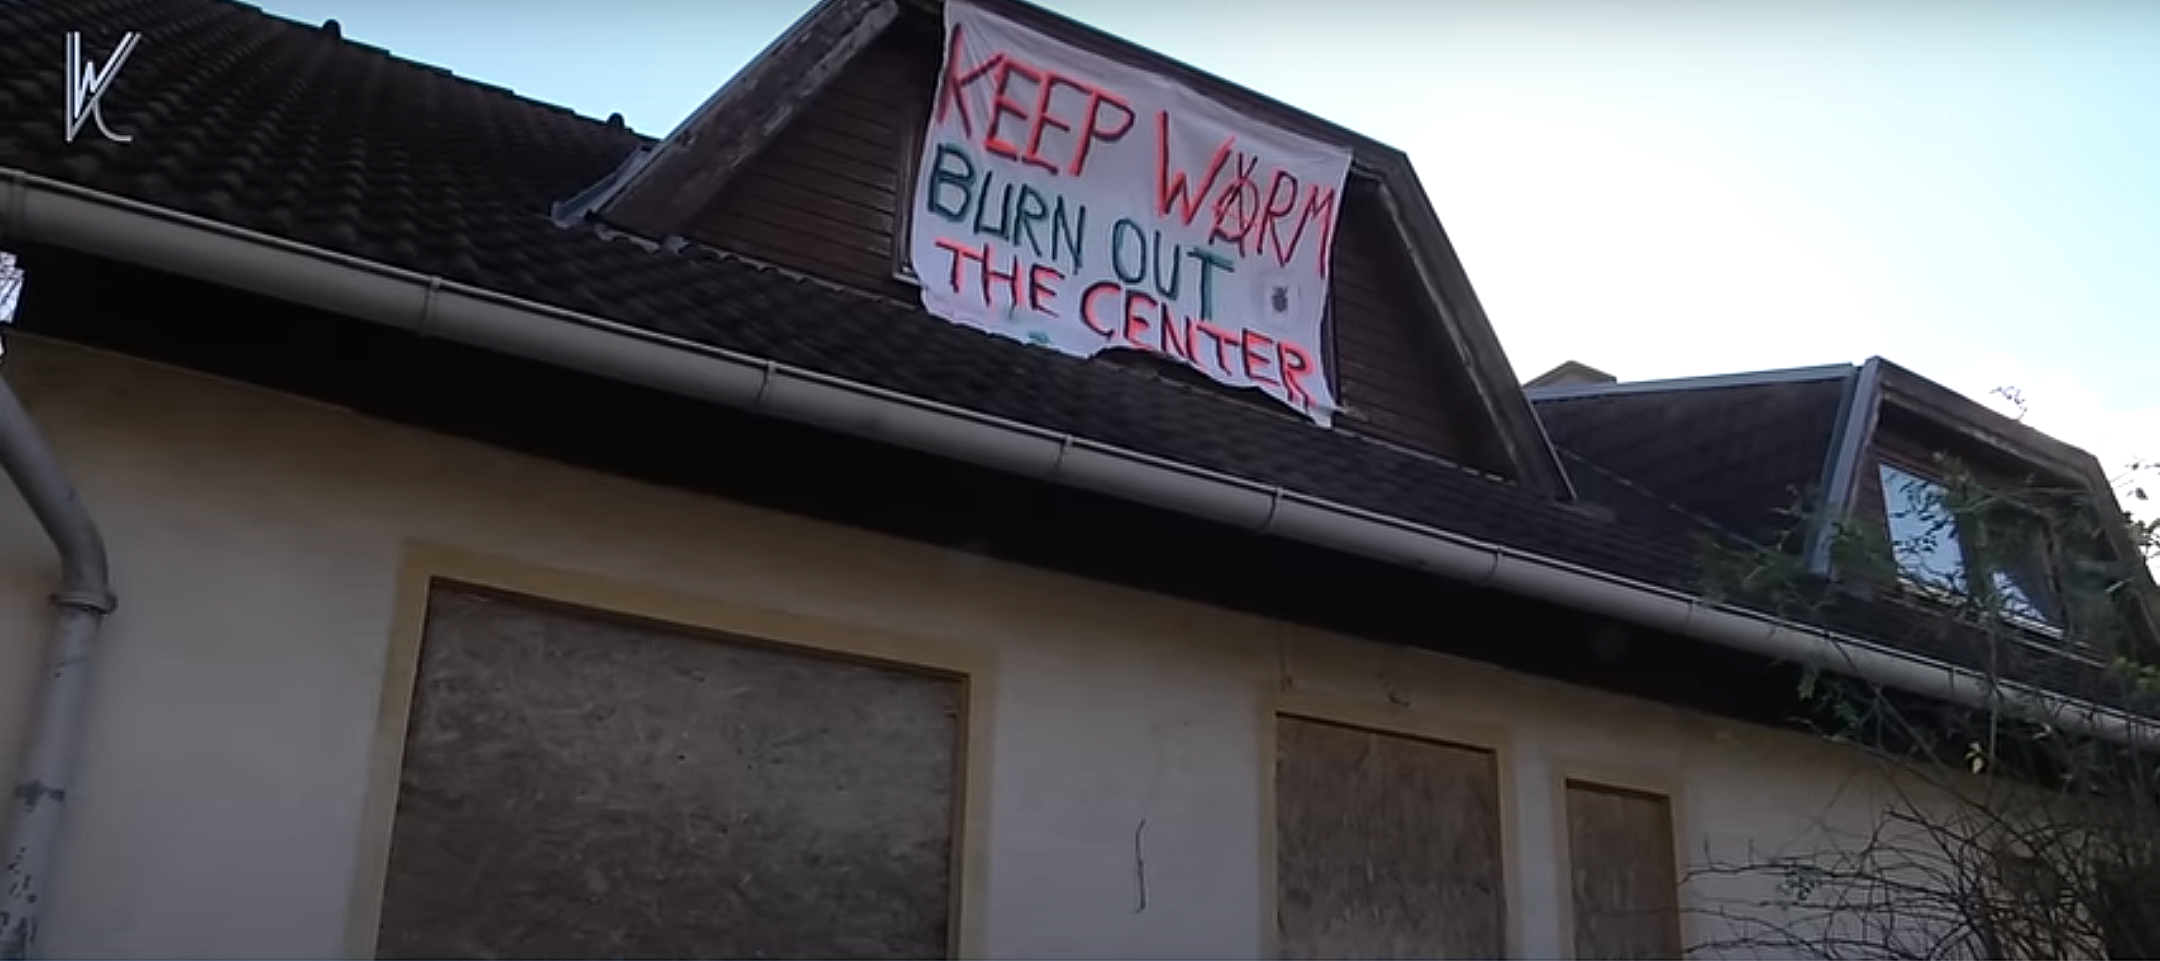 KEEP WARM
BURN OUT
THE CENTER